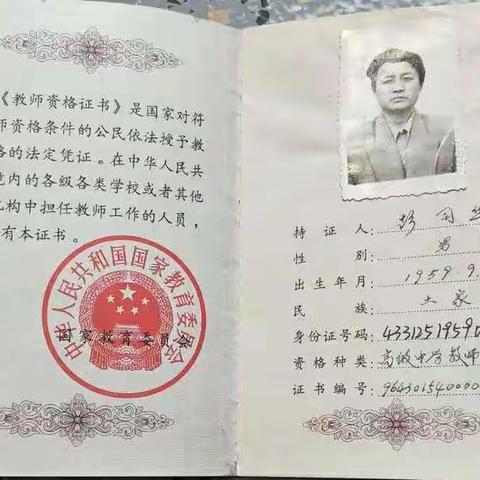 《教师资格证书》是国家对符
师资格条件的公民依法授予教
格的法定凭证。在中华人民共
境内的各级各类学校或者其他
机构中担任教师工作的人员，
有本证书。
中华人民共和国国家教育委员会
国家教育委员会
持证人：彭司
性别：男
出生年月：1959.9.
民族：土家
身份证号码：4331251959
资格种类：高级中学教师
证书编号：964301540000